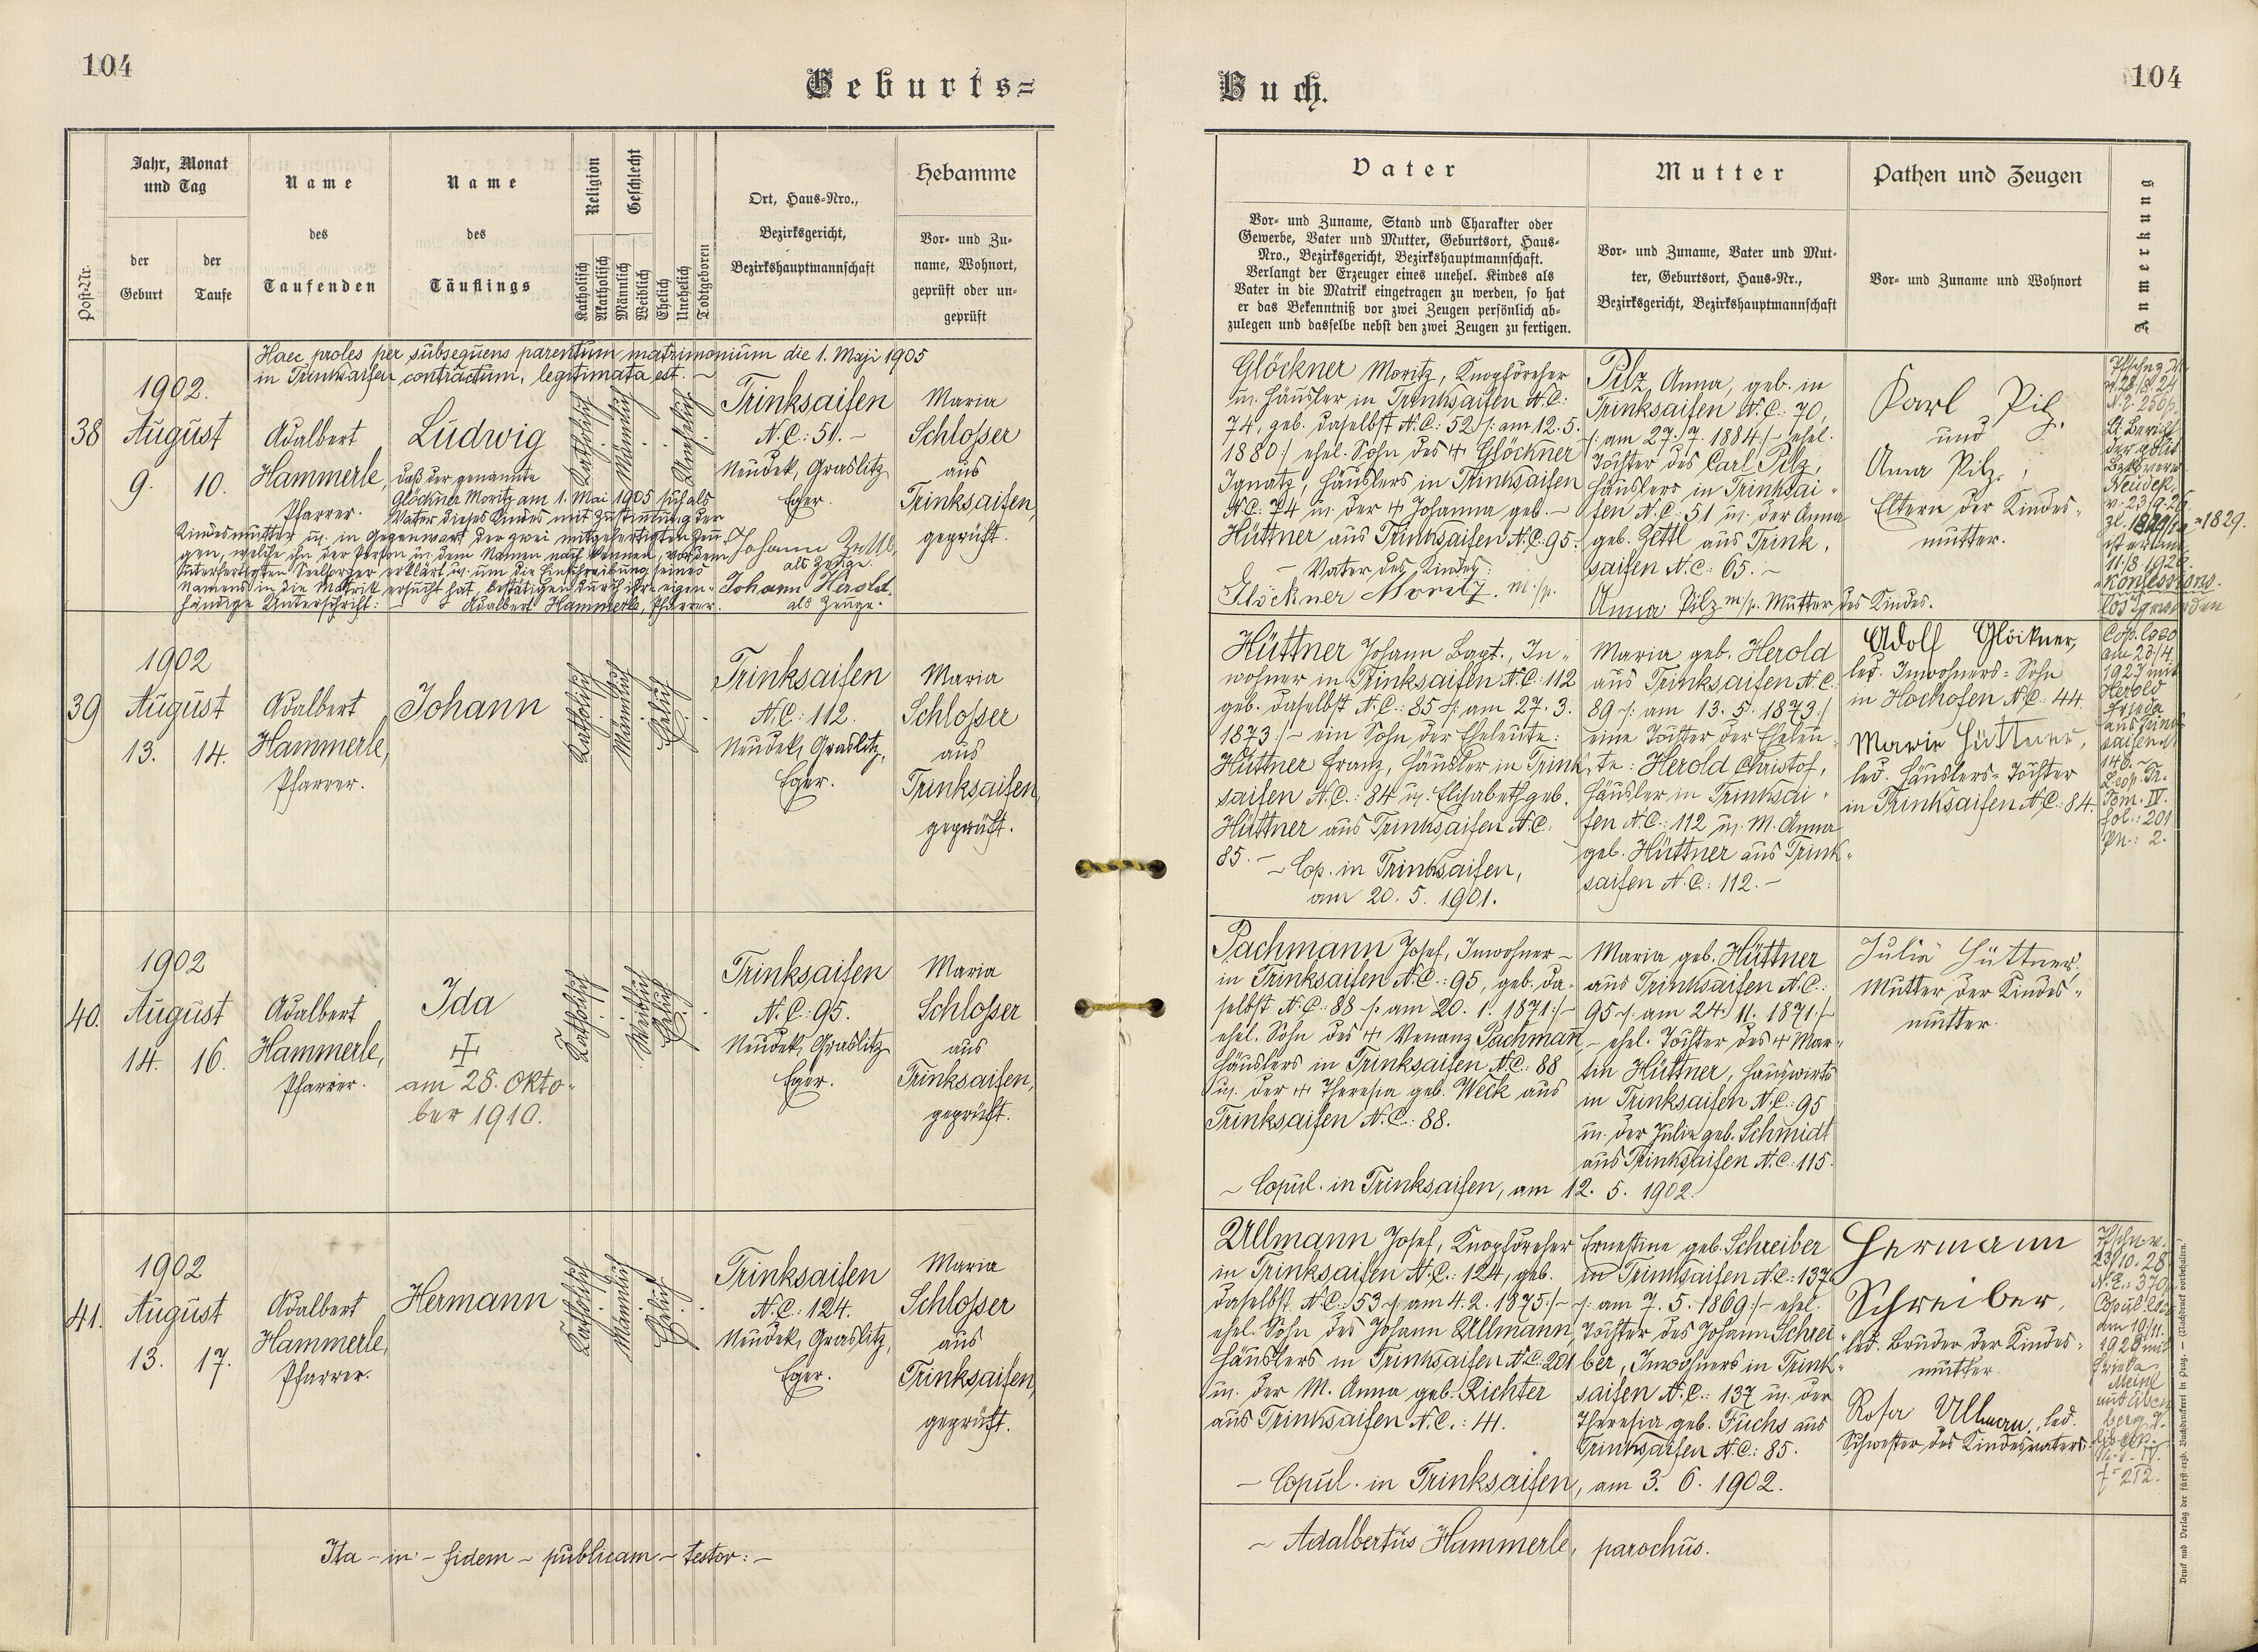 104
Geburts=
Buch.
104
Post-Nr.
Jahr, Monat
und Tag
der
Geburt
der
Taufe
Name
des
Taufenden
Name
des
Täuflings
Religion
Katholisch
Akatholisch
Geschlecht
Männlich
Weiblich
Ehelich
Unehelich
Todtgeboren
Ort, Haus-Nro.,
Bezirksgericht,
Bezirkshauptmannschaft
Hebamme
Vor- und Zu-
name, Wohnort,
geprüft oder un-
geprüft
Vater
Vor- und Zuname, Stand und Charakter oder
Gewerbe, Vater und Mutter, Geburtsort, Haus-
Nro., Bezirksgericht, Bezirkshauptmannschaft.
Verlangt der Erzeuger eines unehel. Kindes als
Vater in die Matrik eingetragen zu werden, so hat
er das Bekenntniß vor zwei Zeugen persönlich ab-
zulegen und dasselbe nebst den zwei Zeugen zu fertigen.
Mutter
Vor- und Zuname, Vater und Mut-
ter, Geburtsort, Haus-Nr.,
Bezirksgericht, Bezirkshauptmannschaft
Pathen und Zeugen
Vor- und Zuname und Wohnort
Anmerkung
Haec proles per subsequens parentum matrimonium die 1. Maji 1905
in Trinksaifen contractum, legitimata est. –
38
1902.
August
9. 10.
Adalbert
Hammerle,
Pfarrer.
Ludwig
Katholisch
Männlich
Unehelich
daß der genannte
Glöckner Moritz am 1. Mai 1905 sich als
Vater dieses Kindes mit Zustimmung der
Kindesmutter u. in Gegenwart der zwei mitgefertigten Zeu-
gen, welche ihn der Person u. dem Namen nach kennen, vor dem
unterfertigten Seelsorger erklärt u. um die Einschreibung seines
Namens in die Matrik ersucht hat, bestätigen durch ihre eigen-
händige Unterschrift: Adalbert Hammerle, Pfarrer.
Trinksaifen
N.C.: 51. –
Neudek, Graslitz
Eger.
Johann
als Zeuge.
Johann Herold
als Zeuge.
Maria
Schlosser
aus
Trinksaifen,
geprüft.
Glöckner Moritz, Knopfdreher
u. Häusler in Trinksaifen N.C.:
74, geb. daselbst N.C.: 52 /: am 12. 5.
1880 :/ ehel. Sohn des + Glöckner
Ignatz, Häuslers in Trinksaifen
N.C. 74 u. der + Johanna geb. –
Hüttner aus Trinksaifen N.C. 95.
– Vater des Kindes:
Glöckner Moritz. m/p.
Pilz Anna, geb. in
Trinksaifen N.C.: 70,
/: am 27. 7. 1884 :/ – ehel.
Tochter des Carl Pilz,
Häuslers in Trinksai-
fen N.C.: 51 u. der Anna
geb. Zettl aus Trink-
saifen N.C.: 65. –
Anna Pilz m/p. Mutter des Kindes.
Karl Pilz.
und
Anna Pilz,
Eltern der Kindes-
mutter.
v. 28/8. 24
Neudek
v. 23/9. 26
1829.
11./8. 1926.
konfessions-
los geworden
39
1902
August
13. 14.
Adalbert
Hammerle,
Pfarrer.
Johann
Katholisch
Männlich
Ehelich
Trinksaifen
N.C.: 112.
Neudek, Graslitz,
Eger.
Maria
Schlosser
aus
Trinksaifen,
geprüft.
Hüttner Johann Bapt., In-
wohner in Trinksaifen N.C.: 112
geb. daselbst N.C.: 85 /: am 27. 3.
1873 :/ – ein Sohn der Eheleute:
Hüttner Franz, Häusler in Trink-
saifen N.C.: 84 u. Elisabeth geb.
Hüttner aus Trinksaifen N.C.
85. –
– Cop. in Trinksaifen,
am 20. 5. 1901.
Maria geb. Herold
aus Trinksaifen N.C.
89 /: am 13. 5. 1873 :/
eine Tochter der Eheleu-
te: Herold Christof,
Häusler in Trinksai-
fen N.C.: 112 u. M. Anna
geb. Hüttner aus Trink-
saifen N.C.: 112. –
Adolf Glöckner,
led. Inwohners-Sohn
in Hochofen N.C.: 44.
Marie Hüttner,
led. Häuslers-Tochter
in Trinksaifen N.C.: 84.
Cop. loco
am 23./4.
1927 mit
Herold
Frieda
aus Trink-
saifen N.
146. –
Tom. IV.
fol.: 201
pn.: 2.
40.
1902
August
14. 16.
Adalbert
Hammerle,
Pfarrer.
Ida
+
am 28. Okto-
ber 1910.
Katholisch
Weiblich
Ehelich
Trinksaifen
N.C.: 95.
Neudek, Graslitz
Eger.
Maria
Schlosser
aus
Trinksaifen,
geprüft.
Pachmann Josef, Inwohner –
in Trinksaifen N.C.: 95, geb. da-
selbst N.C.: 88 /: am 20. 1. 1871 :/ –
ehel. Sohn des + Venanz Pachmann,
Häuslers in Trinksaifen N.C.: 88
u. der + Theresia geb. Weck aus
Trinksaifen N.C.: 88.
– Copul. in Trinksaifen, am 12. 5. 1902.
Maria geb. Hüttner
aus Trinksaifen N.C.:
95 /: am 24. 11. 1871 :/
– ehel. Tochter des + Mar-
tin Hüttner, Hauswirts
in Trinksaifen N.C.: 95
u. der Julie geb. Schmidt
aus Trinksaifen N.C.: 115.
Julie Hüttner,
Mutter der Kindes-
mutter.
41.
1902
August
13. 17.
Adalbert
Hammerle,
Pfarrer.
Hermann
Katholisch
Männlich
Ehelich
Trinksaifen
N.C.: 124.
Neudek, Graslitz,
Eger.
Maria
Schlosser
aus
Trinksaifen,
geprüft.
Ullmann Josef, Knopfdreher
in Trinksaifen N.C.: 124, geb.
daselbst N.C.: 53 /: am 4. 2. 1875 :/ –
ehel. Sohn des Johann Ullmann,
Häuslers in Trinksaifen N.C.: 201
u. der M. Anna geb. Richter
aus Trinksaifen N.C.: 41.
– Copul. in Trinksaifen, am 3. 6. 1902.
Ernestine geb. Schreiber
in Trinksaifen N.C.: 137
/: am 7. 5. 1869 :/ – ehel.
Tochter des Johann Schrei-
ber, Inwohners in Trink-
saifen N.C.: 137 u. der
Theresia geb. Fuchs aus
Trinksaifen N.C.: 85.
Hermann
Schreiber,
led. Bruder der Kindes-
mutter.
Rosa Ullmann, led.
Schwester des Kindesvaters.
23/10. 28
N.E.: 370
Copul. loco
am 10/11.
1928 mit
Meinl
f. 212.
Ita – in – fidem – publicam – testor: –
– Adalbertus Hammerle, parochus.
Druck und Verlag der fürst-erzb. Buchdruckerei in Prag. — (Nachdruck vorbehalten.)